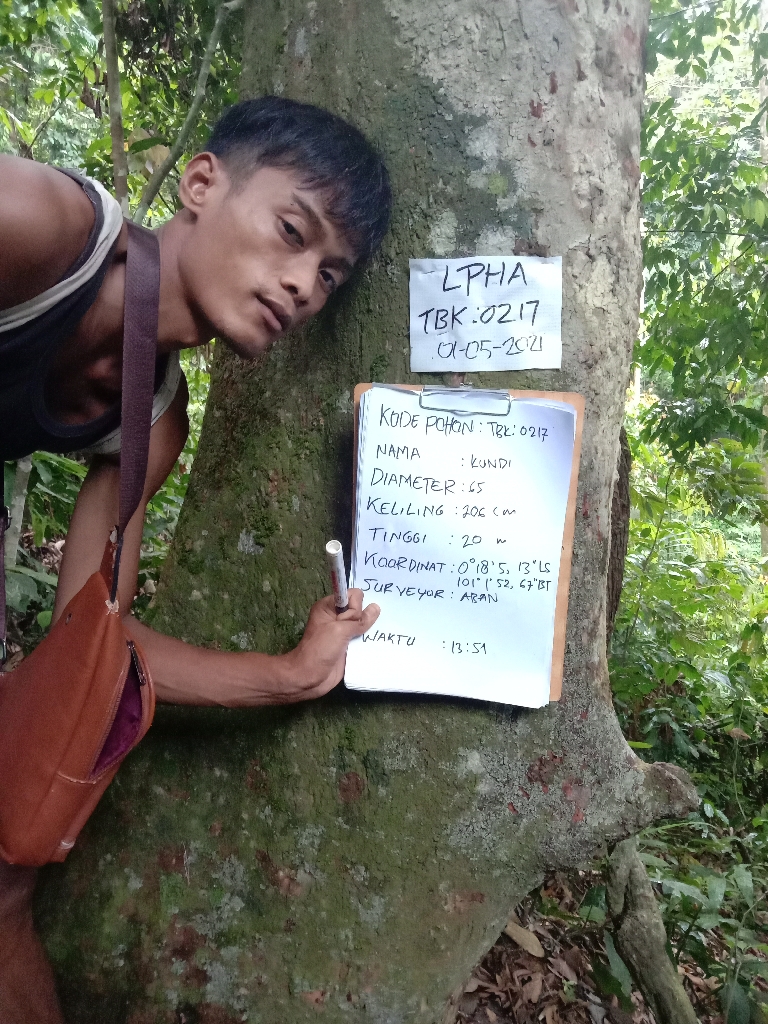 LPHA
TBK:0217
01-05-2021
KODE POHON : TBK:0217
NAMA : KUNDI
DIAMETER : 65
KELILING : 206 cm
TINGGI : 20 m
KOORDINAT : 0°18'5, 13"LS
101°1'52, 67"BT
SURVEYOR : ABAN
WAKTU : 13:51